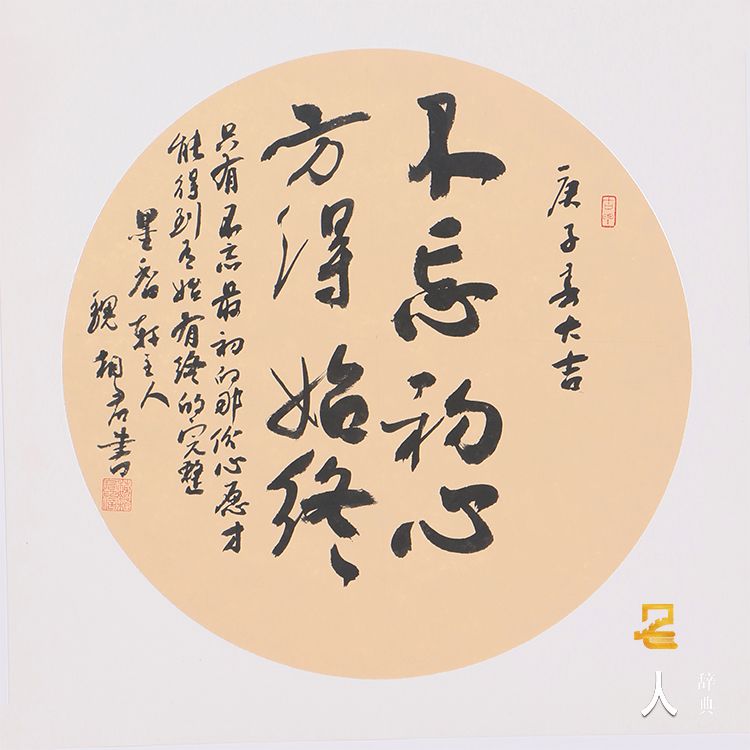 庚子春大吉
不忘初心
方得始终
只有不忘最初的那份心愿才
能得到有始有终的完整
墨香轩主人
魏朝君书
人
辞典